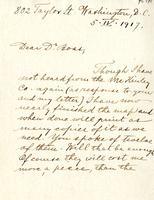 802 Taylor St. Washington, D.C.
5-IV-1917.
Dear Dr. Boas;
Though I have
not heard from the McKinley
Co. again (as response to you
and my letter) I have now
nearly finished the map and
when done will print as
many copies of it as we
need. You spoke of twelve
of these. Will that be enough?
Of course they will cost me
more a piece, than the